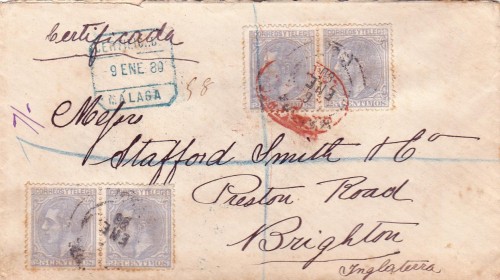 Certificada
CERTIFICADO
9 ENE 80
MALAGA
CORREOS Y TELEGS
CORREOS Y TELEGS
25 CENTIMOS
25 CENTIMOS
ENE
Messrs
Stafford Smith & Co
Preston Road
Brighton
Inglaterra
CORREOS Y TELEGS
CORREOS Y TELEGS
25 CENTIMOS
25 CENTIMOS
ENE
80